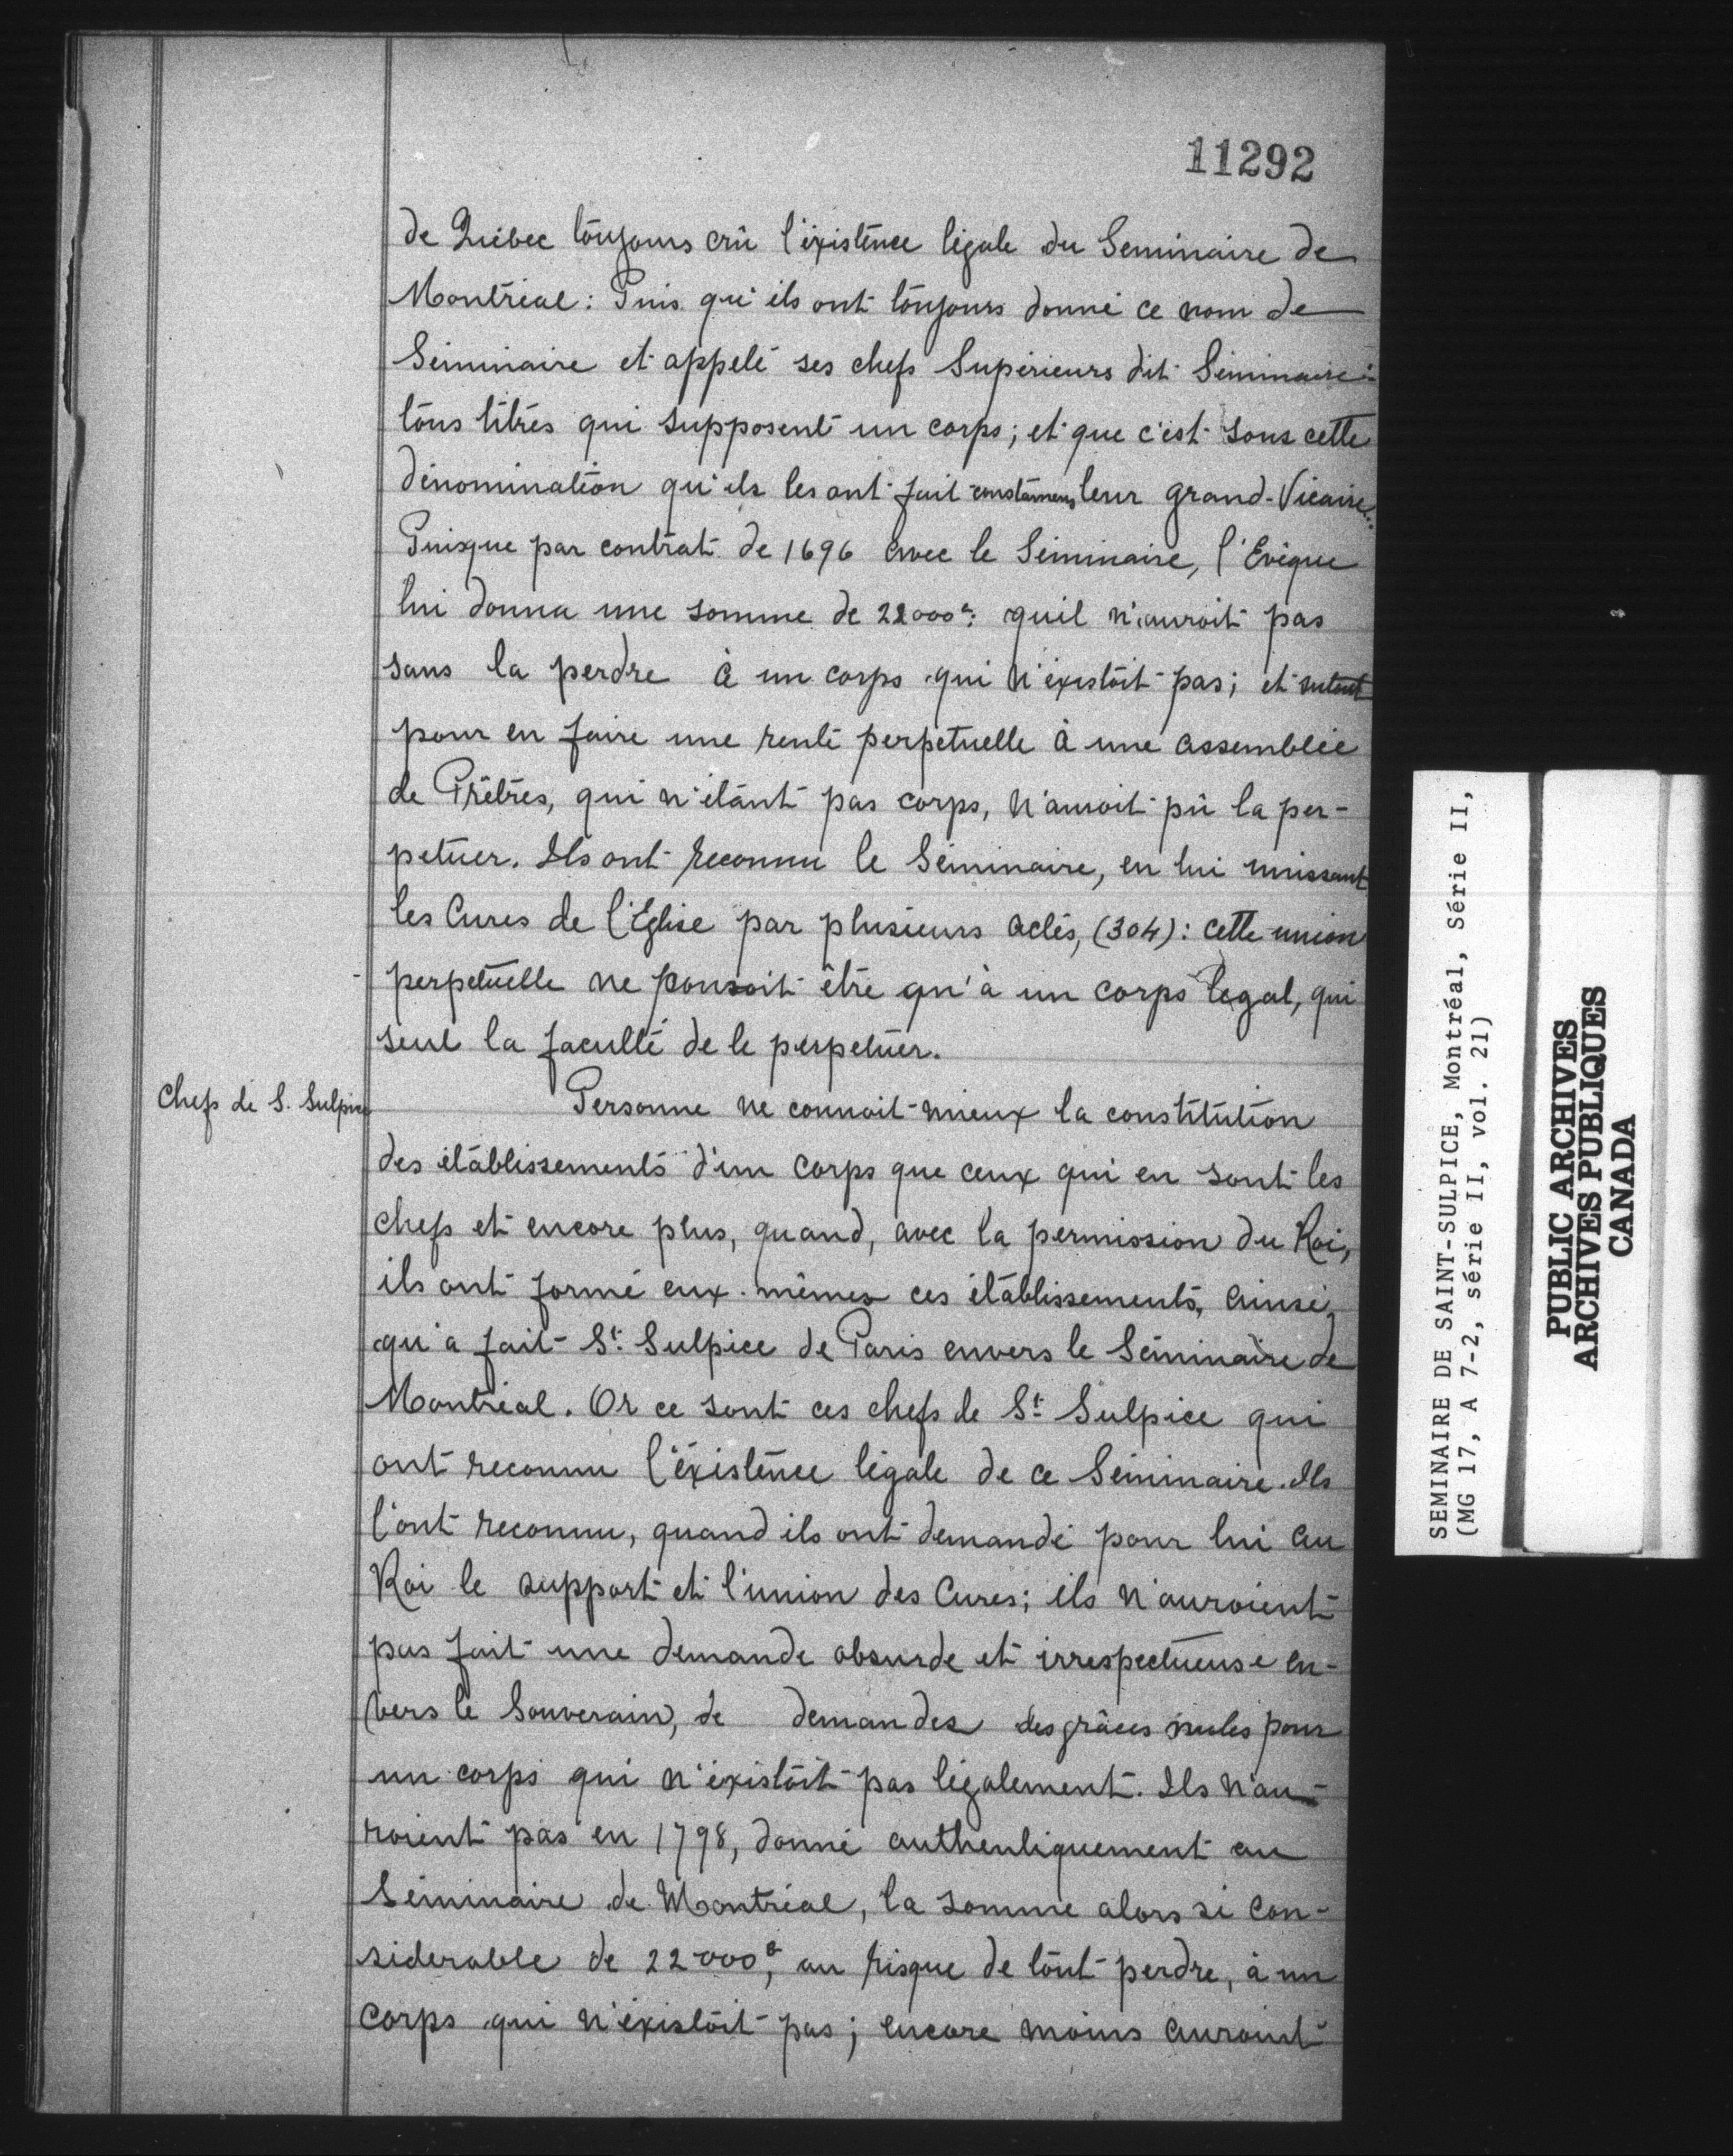 11292
de Québec toujours crû l'éxistence légale du Seminaire de
Montréal : Puis qu'ils ont toujours donné ce nom de
Séminaire et appelé ses chefs Supérieurs dit Séminaire:
tous titres qui supposent un corps; et que c'est sous cette
dénomination qu'ils les ont fait constamens leur grand-Vicaire.
Puisque par contrat de 1696 avec le Séminaire, l'Evêque
lui donna une somme de 22000 quil n'auroit pas
sans la perdre à un corps qui n'éxistoit pas; et
pour en faire une rente perpetuelle à une assemblée
de Prêtres, qui n'étant pas corps, n'auroit pû la per-
petuer. Ils ont reconnu le Séminaire, en lui unissant
les Cures de l'Eglise par plusieurs actes, (304): cette union
perpetuelle ne pouvoit être qu'à un corps legal, qui
seul la faculté de le perpetuer.
Chefs de S. Sulpice
Personne ne connait mieux la constitution
des établissements d'un corps que ceux qui en sont les
chefs et encore plus, quand, avec la permission du Roi,
ils ont formé eux-mêmes ces établissements, ainsi,
qu'a fait St. Sulpice de Paris envers le Séminaire de
Montréal. Or ce sont ces chefs de St. Sulpice qui
ont reconnu l'éxistence légale de ce Séminaire. Ils
l'ont reconnu, quand ils ont demandé pour lui au
Roi le support et l'union des Cures; ils n'auroient
pas fait une demande absurde et irrespectueuse en-
vers le Souverain, de demandes des grâces nules pour
un corps qui n'éxistoit pas légalement. Ils n'au-
roient pas en 1798, donné authentiquement au
Séminaire de Montréal, la somme alors si con-
siderable de 22000, au risque de tout perdre, à un
corps qui n'éxistoit pas; encore moins auroint
SEMINAIRE DE SAINT-SULPICE, Montréal, Série II,
(MG 17, A 7-2, série II, vol. 21)
PUBLIC ARCHIVES
ARCHIVES PUBLIQUES
CANADA